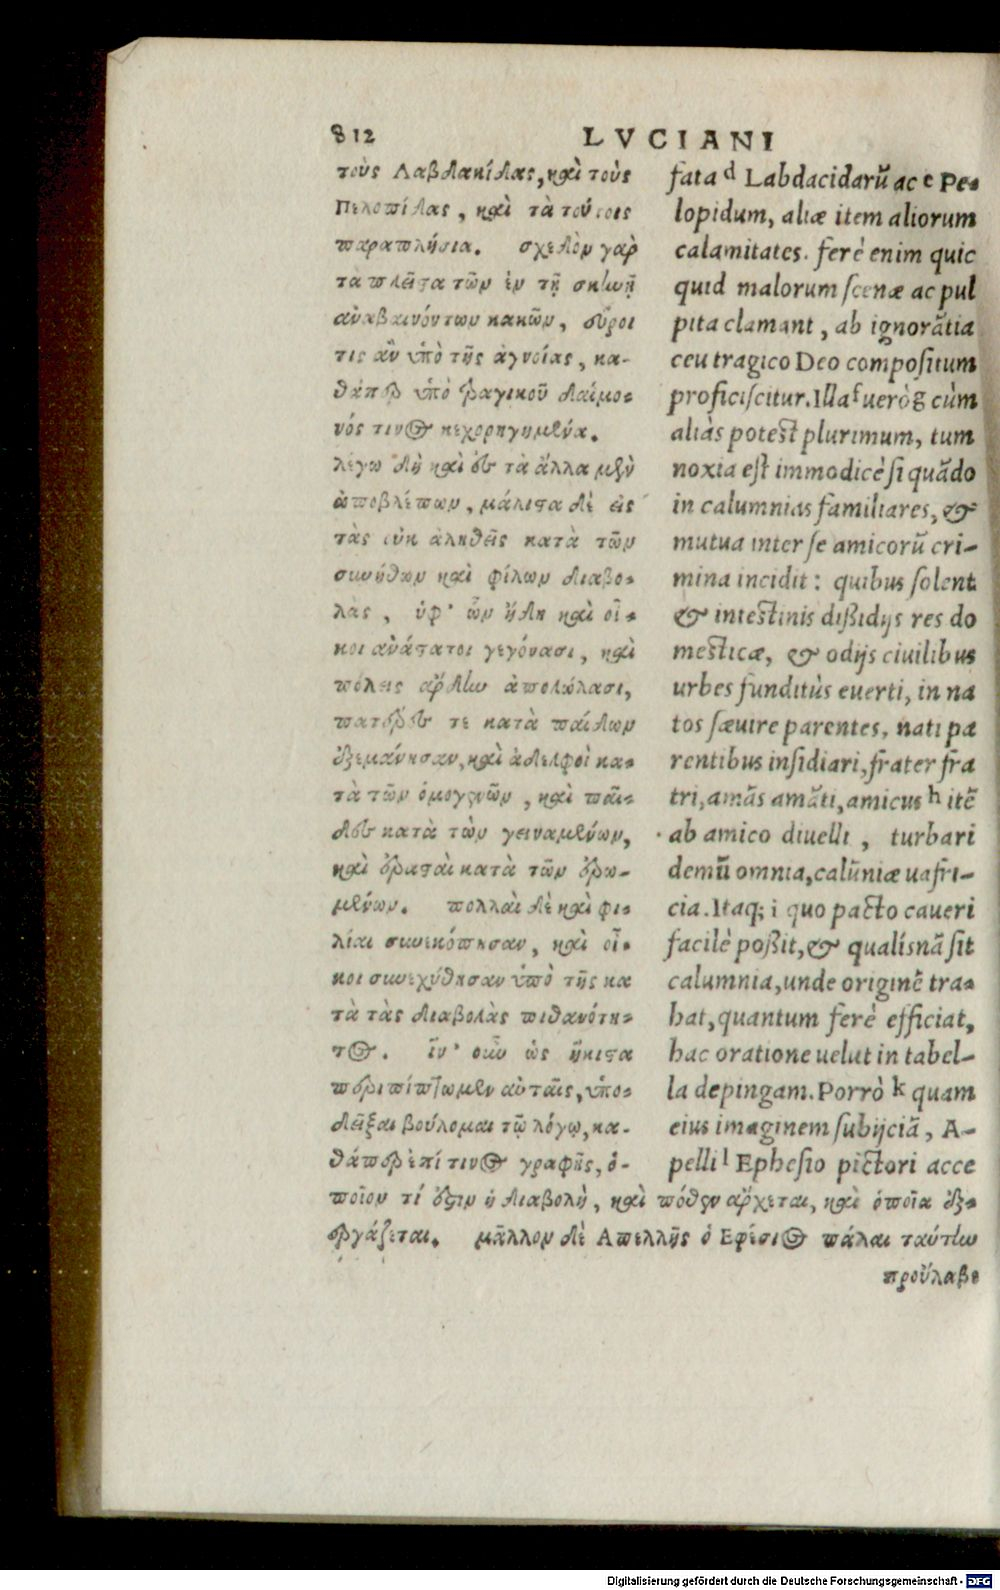 812
LVCIANI
τοὺς Λαβδακίδας, καὶ τοὺς
Πελοπίδας, καὶ τὰ τούτοις
παραπλήσια. σχεδὸν γὰρ
τὰ πλεῖστα τῶν ἐν τῇ σκηνῇ
ἀναβαινόντων κακῶν, εὕροι
τις ἂν ὑπὸ τῆς ἀγνοίας, κα-
θάπερ ὑπὸ τραγικοῦ δαίμο-
νός τινος κεχορηγημένα.
λέγω δὴ καὶ ἐς τὰ ἄλλα μὲν
ἀποβλέπων, μάλιστα δὲ εἰς
τὰς οὐκ ἀληθεῖς κατὰ τῶν
συνήθων καὶ φίλων διαβο-
λὰς, ὑφ' ὧν ἤδη καὶ οἶ-
κοι ἀνάστατοι γεγόνασι, καὶ
πόλεις ἄρδην ἀπολώλασι,
πατέρες τε κατὰ παίδων
ἐξεμάνησαν, καὶ ἀδελφοὶ κα-
τὰ τῶν ὁμογενῶν, καὶ παῖ-
δες κατὰ τῶν γειναμένων,
καὶ ἐρασταὶ κατὰ τῶν ἐρω-
μένων. πολλαὶ δὲ καὶ φι-
λίαι συνεκόπησαν, καὶ οἶ-
κοι συνεχύθησαν ὑπὸ τῆς κα
τὰ τὰς διαβολὰς πιθανότη-
τος. ἵν' οὖν ὡς ἥκιστα
περιπίπτωμεν αὐταῖς, ὑπο-
δεῖξαι βούλομαι τῷ λόγῳ, κα-
θάπερ ἐπί τινος γραφῆς, ὁ-
ποῖον τί ἐστιν ἡ διαβολὴ, καὶ πόθεν ἄρχεται, καὶ ὁποῖα ἐξ-
εργάζεται. μᾶλλον δὲ Ἀπελλῆς ὁ Ἐφέσιος πάλαι ταύτην
προὔλαβε
fata d Labdacidarũ ac e Pe-
lopidum, aliæ item aliorum
calamitates. ferè enim quic
quid malorum scenæ ac pul
pita clamant, ab ignorãtia
ceu tragico Deo compositum
proficiscitur. Illa f uerò g cùm
aliàs potest plurimum, tum
noxia est immodicè si quãdo
in calumnias familiares, &
mutua inter se amicorũ cri-
mina incidit: quibus solent
& intestinis dißidijs res do
mesticæ, & odijs ciuilibus
urbes funditùs euerti, in na
tos sæuire parentes, nati pa
rentibus insidiari, frater fra
tri, amãs amãti, amicus h itẽ
ab amico diuelli, turbari
demũ omnia, calũniæ uafri-
cia. Itaq; i quo pacto caueri
facilè poßit, & qualísnã sit
calumnia, unde originẽ tra-
hat, quantum ferè efficiat,
hac oratione uelut in tabel-
la depingam. Porrò k quam
eius imaginem subijciã, A-
pelli l Ephesio pictori acce
Digitalisierung gefördert durch die Deutsche Forschungsgemeinschaft - DFG